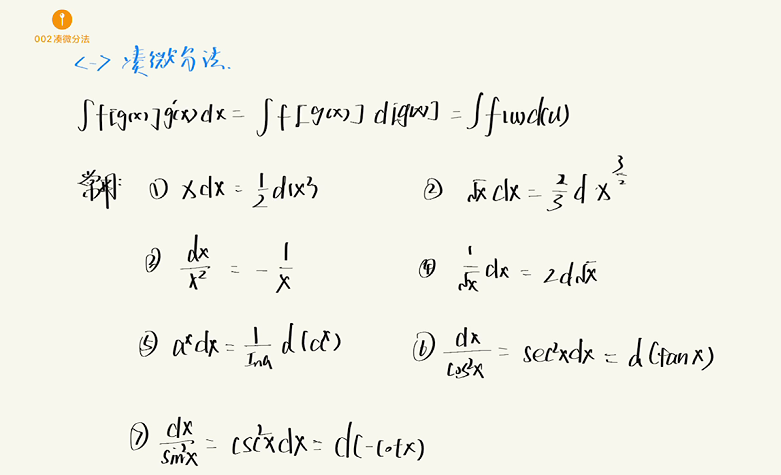 002凑微分法
<一> 凑微分法.
∫f[g(x)]g'(x)dx = ∫f[g(x)] d[g(x)] = ∫f(u)d(u)
常用: ① xdx = 1/2 d(x²) ② √x dx = 2/3 d x^(3/2)
③ dx/x² = - 1/x ④ 1/√x dx = 2d√x
⑤ a^x dx = 1/lna d(a^x) ⑥ dx/cos²x = sec²xdx = d(tanx)
⑦ dx/sin²x = csc²xdx = d(-cotx)